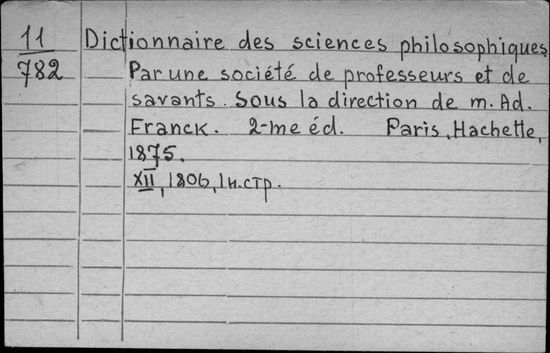 11
782
Dictionnaire des sciences philosophiques
Par une société de professeurs et de
savants. Sous la direction de m. Ad.
Franck. 2-me éd. Paris, Hachette,
1875.
XII, 1806, 1 н.стр.